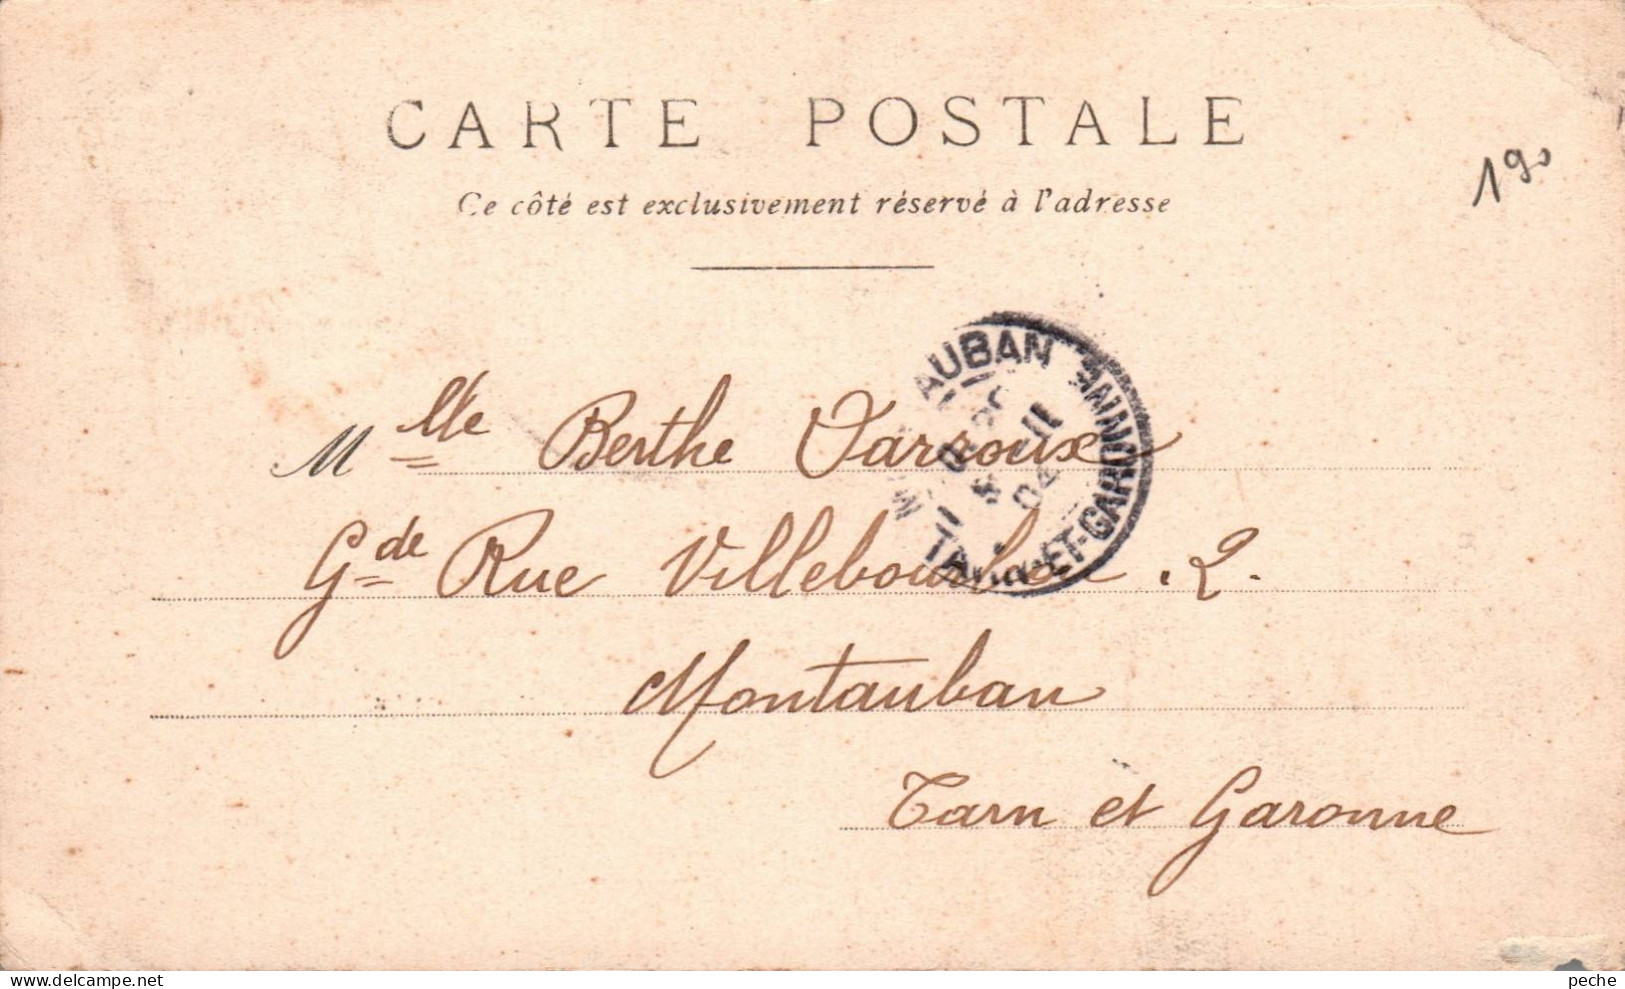 CARTE POSTALE
Ce côté est exclusivement réservé à l'adresse
190
Mlle Berthe Varroux
Gde Rue Villebourbon . 2.
Montauban
Tarn et Garonne
AUBAN
TARN-ET-GARONNE
11
04
delcampe.net
peche